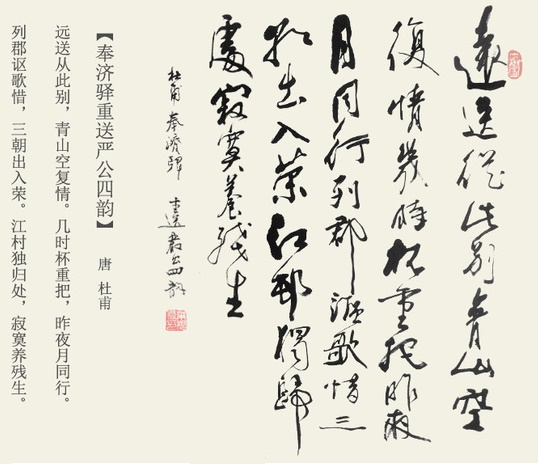 遠送從此別青山空
復情幾時杯重把昨夜
月同行列郡謳歌惜三
朝出入榮江邨獨歸
處寂寞養殘生
杜甫奉濟驛重送嚴公四韻
【奉济驿重送严公四韵】
唐 杜甫
远送从此别，青山空复情。几时杯重把，昨夜月同行。
列郡讴歌惜，三朝出入荣。江村独归处，寂寞养残生。